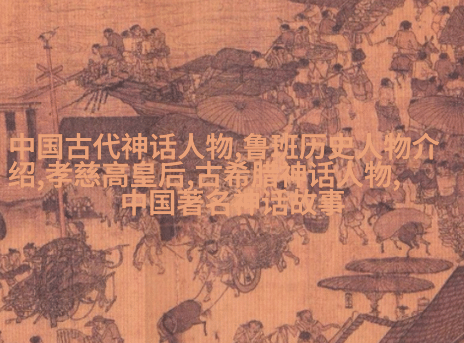 中国古代神话人物,鲁班历史人物介
绍,孝慈高皇后,古希腊神话人物,
中国著名神话故事